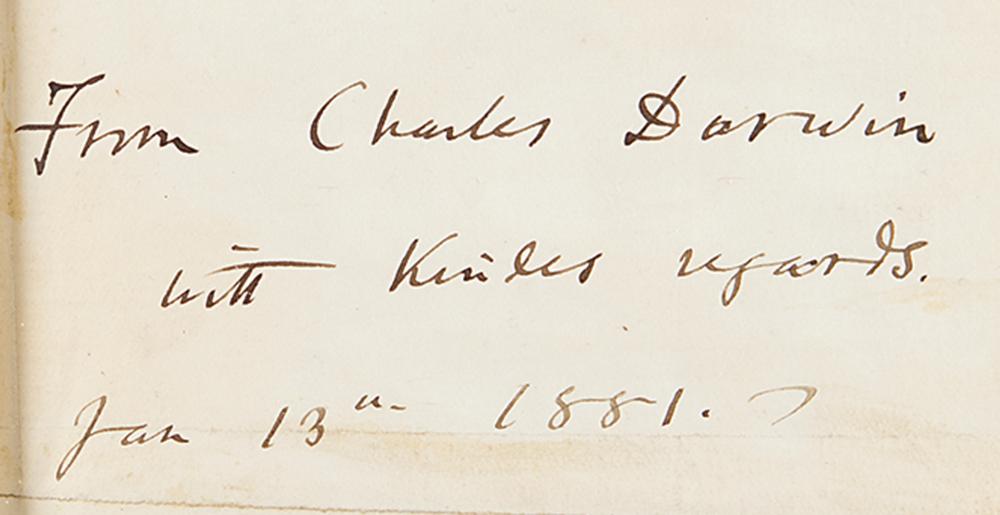 From Charles Darwin
with kindest regards.
Jan 13th 1881.